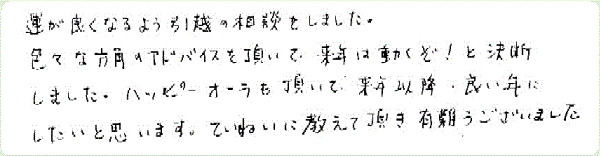 運が良くなるよう引越の相談をしました。
色々な方角のアドバイスを頂いて、来年は動くぞ!と決断
しました。ハッピーオーラも頂いて、来年以降、良い年に
したいと思います。ていねいに教えて頂き有難うございました